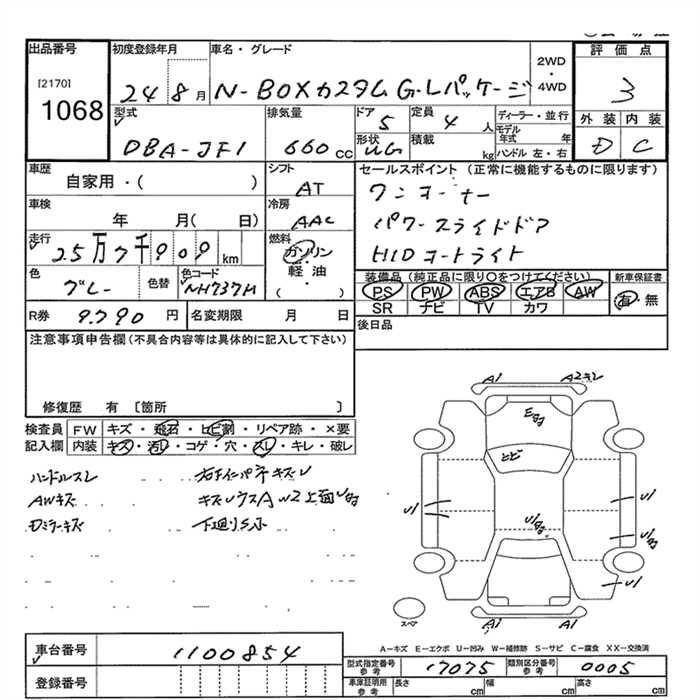 出品番号 初度登録年月 車名・グレード 2WD・4WD 評価点
[2170]
1068
24 8月 N-BOXカスタム G・Lパッケージ 3
型式 排気量 ドア 5 定員 4人 ディーラー・並行 外装 内装
DBA-JF1 660cc 形状 UG 積載 kg モデル年式 年 ハンドル 左・右 D C
車歴 シフト セールスポイント (正常に機能するものに限ります)
自家用・( ) AT ワンオーナー
車検 冷房 パワースライドドア
年 月( 日) AAC
走行 燃料 HIDオートライト
25万7千909km ガソリン・軽油( )
色 色替 色コード 装備品 (純正品に限り○をつけてください) 新車保証書
グレー NH737M PS PW ABS エアB AW 有・無
SR ナビ TV カワ
R券 9,790円 名変期限 月 日 後日品
注意事項申告欄(不具合内容等は具体的に記入して下さい)
修復歴 有 〔箇所 〕
検査員 FW キズ・飛石・ヒビ割・リペア跡・×要
記入欄 内装 キズ・汚レ・コゲ・穴・スレ・キレ・破レ
ハンドルスレ
AWキズ
Dミラーキズ
下廻りSホ
A1 A2キレ
ヒビ
U1 U1
U1
A1 A1
スペア
A-キズ E-エクボ U-凹み W-補修跡 S-サビ C-腐食 XX-交換済
車台番号 1100854
型式指定番号 参考 17075 類別区分番号 参考 0005
登録番号 車庫証明用 参考 長さ cm 幅 cm 高さ cm